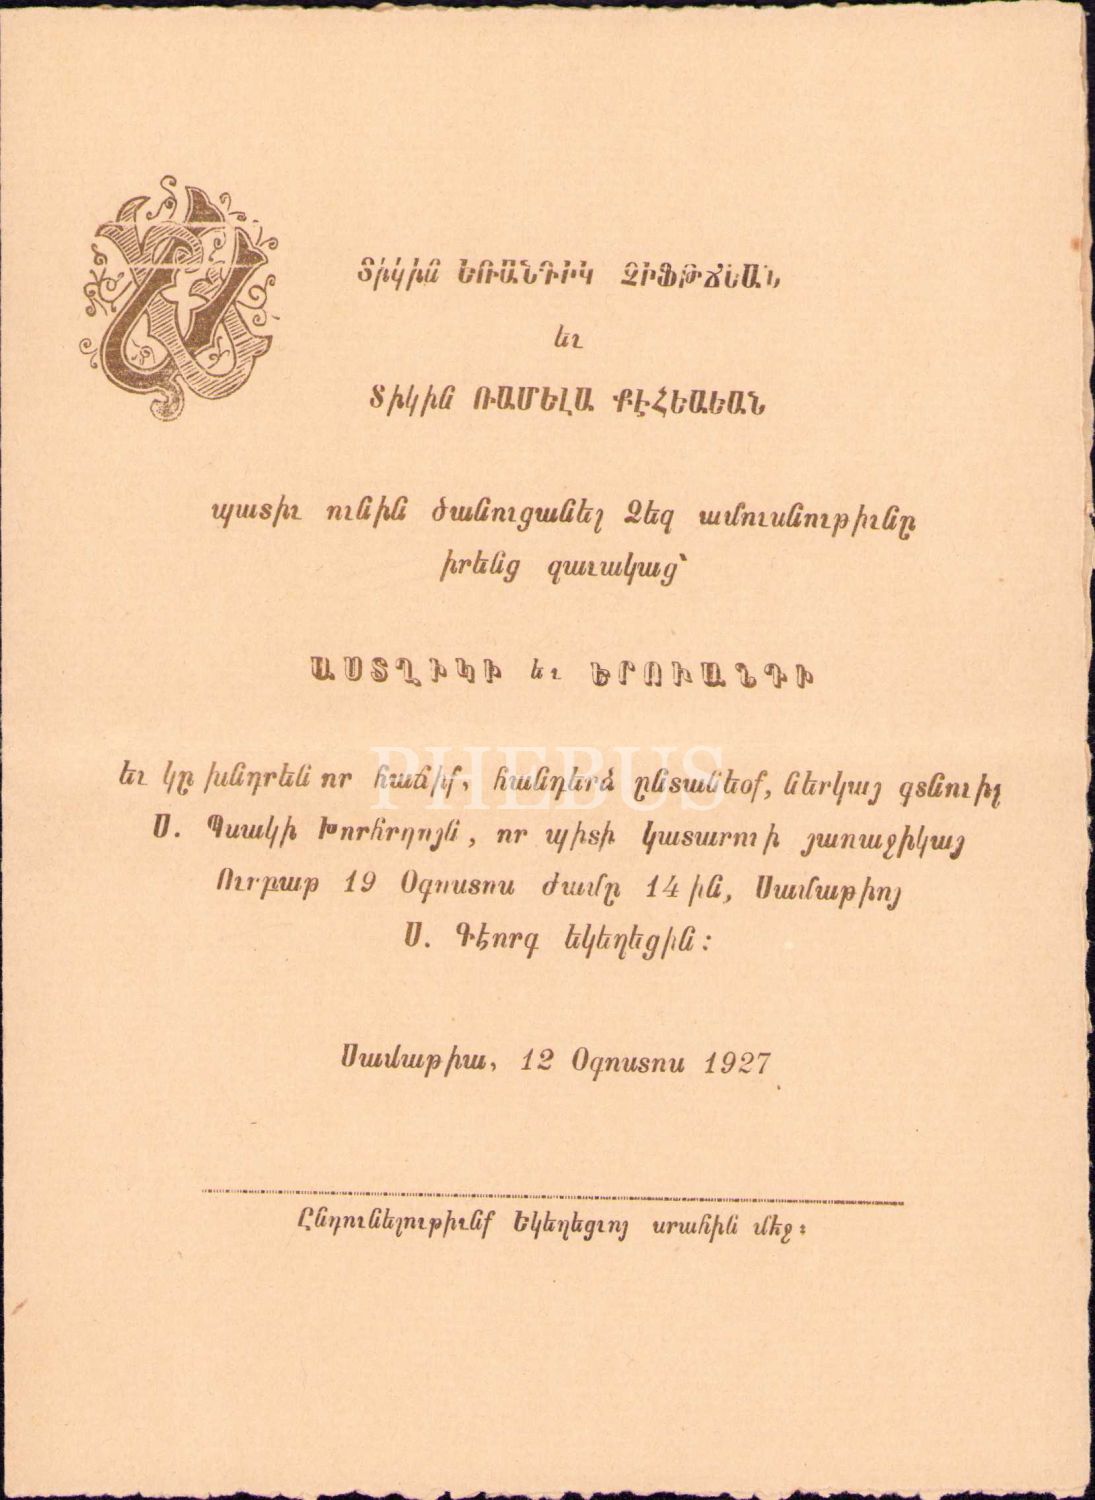 Տիկին ԵՌԱՆԴԻԿ ՉԻՖԹՃԵԱՆ
եւ
Տիկին ՌԱՄԵԼԱ ՔԷՀԵԱԵԱՆ
պատիւ ունին ծանուցանել Ձեզ ամուսնութիւնը
իրենց զաւակաց՝
ԱՍՏՂԻԿԻ եւ ԵՐՈՒԱՆԴԻ
եւ կը խնդրեն որ հաճիք, հանդերձ ընտանեօք, ներկայ գտնուիլ
Ս. Պսակի Խորհրդոյն, որ պիտի կատարուի յառաջիկայ
Ուրբաթ 19 Օգոստոս ժամը 14 ին, Սամաթիոյ
Ս. Գէորգ եկեղեցին։
Սամաթիա, 12 Օգոստոս 1927
Ընդունելութիւնք Եկեղեցւոյ սրահին մէջ։
PHEBUS